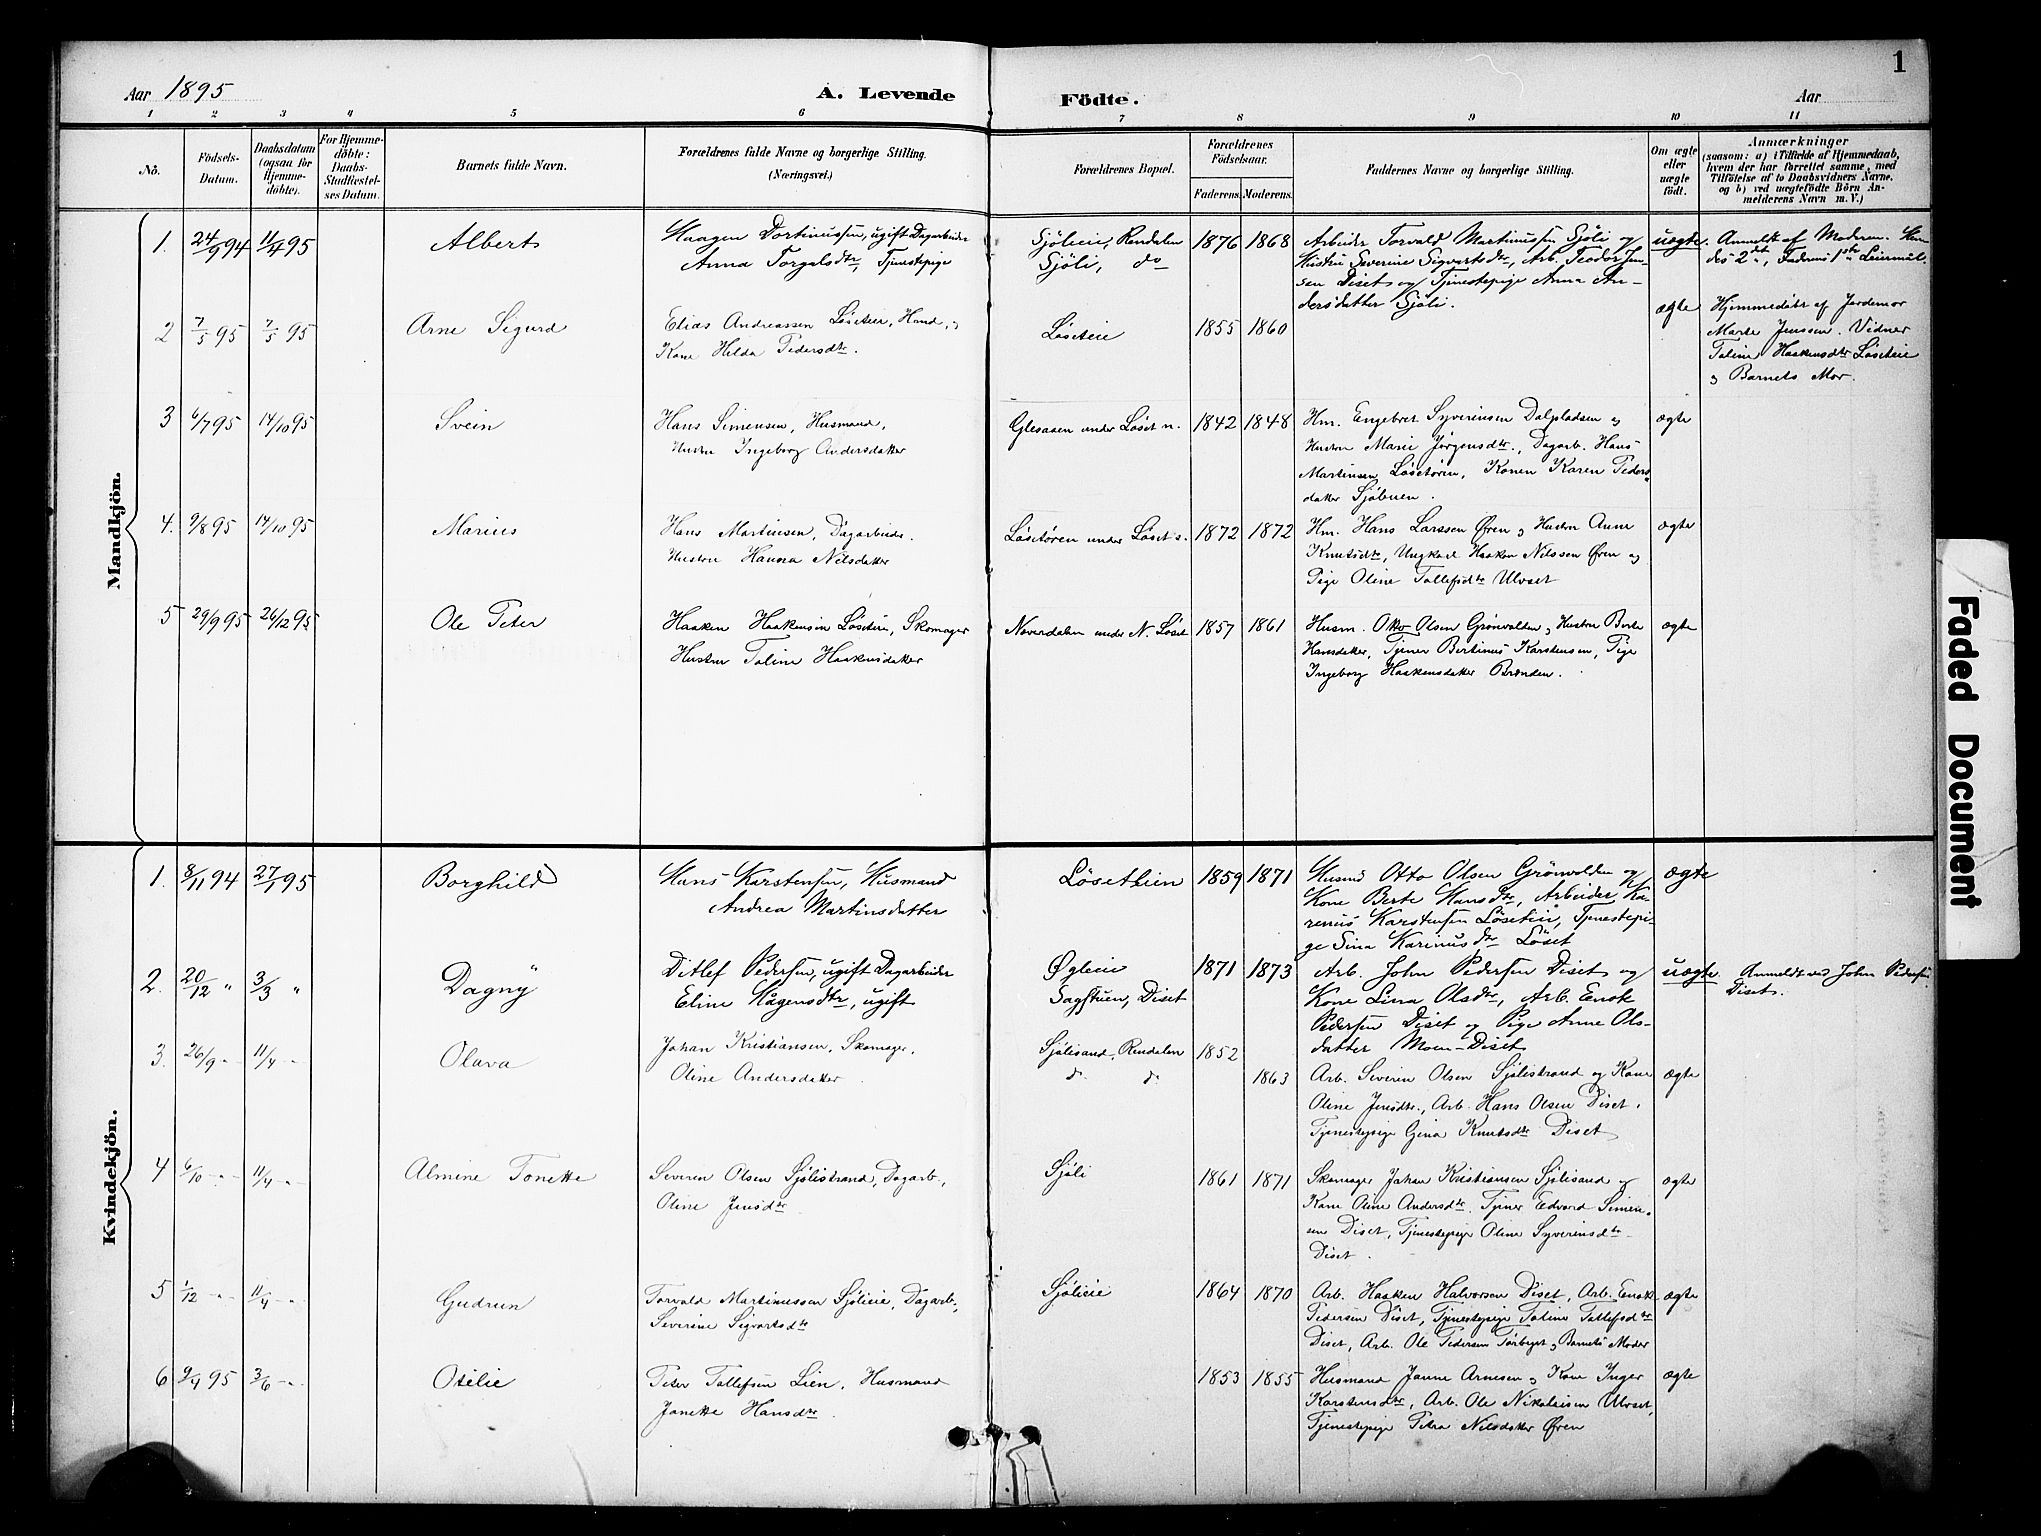 1
Aar 1895
A. Levende Födte.
Aar
1 2 3 4 5 6 7 8 9 10 11
No.
Födsels-Datum.
Daabsdatum (ogsaa for Hjemme-döbte).
For Hjemme-döbte: Daabs-Stadfæstel-ses Datum.
Barnets fulde Navn.
Forældrenes fulde Navne og borgerlige Stilling.
(Næringsvei.)
Forældrenes Bopæl.
Forældrenes Födselsaar.
Faderens. Moderens.
Faddernes Navne og borgerlige Stilling.
Om ægte eller uægte født.
Anmærkninger
(saasom: a) i Tilfælde af Hjemmedaab,
hvem der har forrettet samme, med
Tilföielse af to Daabsvidners Navne,
og b) ved uægtefödte Börn An-
melderens Navn m. V.)
Mandkjön.
1. 24/9 94 11/4 95 Albert
Haagen Dortinussen, ugift Dagarbeider
Anna Torgalsdtr, Tjenestepige
Sjölieie, Rendalen
Sjöli, do
1876 1868
Arbeider Torvald Martinussen Sjöli og
Hustru Severine Sigvartsdtr, Arb. Teodor Jen-
sen Diset og Tjenestepige Anna An-
dersdatter Sjöli.
uægte.
Anmeldt af Moderen. Hen-
des 2det, Faderens 1ste Leiermål.
2 7/5 95 7/5 95 Arne Sigurd
Elias Andreassen Løseteie, Hmd, og
Kone Hilda Pedersdtr.
Løseteie
1855 1860
ægte
Hjemmedöbt af Jordemor
Marte Jenssen. Vidner
Toline Haakensdtr Løseteie
og Barnets Mor.
3 6/7 95 14/10 95 Svein
Hans Simensen, Husmand,
Hustru Ingeborg Andersdatter
Glesaasen under Løset n.
1842 1848
Hm. Engebret Syverinsen Dalpladsen og
Hustru Marie Jørgensdtr., Dagarb. Hans
Martinsen Løsetøren, Konen Karen Peders-
datter Sjöbuen.
ægte
4. 9/8 95 14/10 95 Marius
Hans Martinsen, Dagarbeider.
Hustru Hanna Nilsdatter
Løsetøren under Løset s.
1872 1872
Hm. Hans Larssen Øren og Hustru Anne
Knutsdtr, Ungkarl Haaken Nilssen Øren og
Pige Oline Tollefsdtr Ulvset
ægte
5 29/9 95 26/12 95 Ole Peter
Haaken Haakensen Løseteie, Skomager
Hustru Toline Haakensdatter
Noverdalen under N. Løset
1857 1861
Husm. Otto Olsen Grönvolden og Hustru Berte
Hansdatter, Tjener Bertinus Karstensen, Pige
Ingeborg Haakensdatter Brænden.
ægte
Kvindekjön.
1. 8/11 94 27/1 95 Borghild
Hans Karstensen, Husmand
Andrea Martinsdatter
Løsetlien
1859 1871
Husmd Otto Olsen Grönvolden og
Kone Berte Hansdtr, Arbeider Ka-
renius Karstensen Løseteie, Tjenestepi-
ge Sina Karinusdtr Løset
ægte
2. 20/12 " 3/3 " Dagny
Ditlef Pedersen, ugift Dagarbeider
Eline Hågensdtr, ugift
Øgleie
Sagstuen, Diset
1871 1873
Arb. John Pedersen Diset og
Kone Lina Olsdtr, Arb. Enok
Pedersen Diset og Pige Anne Ols-
datter Moen-Diset
uægte.
Anmeldt ved John Pedersen
Diset.
3. 26/9 - 11/4 - Olava
Johan Kristiansen, Skomager,
Oline Andersdatter
Sjölisand, Rendalen
do do
1852 1863
Arb. Severin Olsen Sjölistrand og Kone
Oline Jensdtr., Arb. Hans Olsen Diset,
Tjenestepige Gina Knutsdtr Diset
ægte
4 6/10 - 11/4 - Almine Tonette
Severin Olsen Sjölistrand, Dagarb.,
Oline Jensdtr
Sjöli
1861 1871
Skomager Johan Kristiansen Sjölisand og
Kone Oline Andersdtr. Tjener Edvard Simen-
sen Diset, Tjenestepige Oline Syverinsdtr
Diset.
ægte
5 1/12 - 11/4 - Gudrun
Torvald Martinussen Sjölieie, Dagarb.,
Severine Sigvartsdtr
Sjölieie
1864 1870
Arb. Haaken Halvorsen Diset, Arb. Enok
Pedersen Diset, Tjenestepige Toline Tollefsdtr
Diset, Arb. Ole Pedersen Torberget og Barnets Moder
ægte
6 9/4 95 3/6 - Otilie
Peter Tollefsen Lien, Husmand
Janette Hansdtr
1853 1855
Husmand Janne Arnesen og Kone Inger
Karstensdtr, Arb. Ole Nikolaisen Ulvset,
Tjenestepige Petra Nilsdatter Øren
ægte
Faded Document